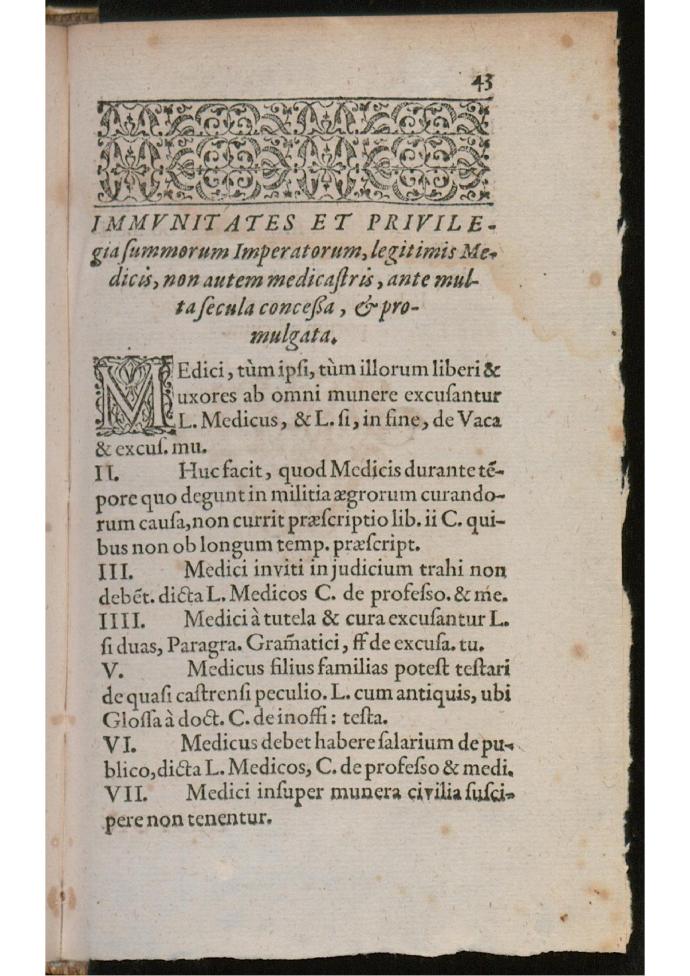 43
IMMVNITATES ET PRIVILE-
gia ſummorum Imperatorum, legitimis Me-
dicis, non autem medicaſtris, ante mul-
ta ſecula conceßa, & pro-
mulgata.
MEdici, tùm ipſi, tùm illorum liberi &
uxores ab omni munere excuſantur
L. Medicus, & L. ſi, in fine, de Vaca
& excuſ. mu.
II. Huc facit, quod Medicis durante tẽ-
pore quo degunt in militia ægrorum curando-
rum cauſa, non currit præſcriptio lib. ii C. qui-
bus non ob longum temp. præſcript.
III. Medici inviti in judicium trahi non
debẽt. dicta L. Medicos C. de profeſſo. & me.
IIII. Medici à tutela & cura excuſantur L.
ſi duas, Paragra. Gram̃atici, ff de excuſa. tu.
V. Medicus filius familias poteſt teſtari
de quaſi caſtrenſi peculio. L. cum antiquis, ubi
Gloſſa à doct. C. de inoffi: teſta.
VI. Medicus debet habere ſalarium de pu-
blico, dicta L. Medicos, C. de profeſſo & medi.
VII. Medici inſuper munera civilia ſuſci-
pere non tenentur.